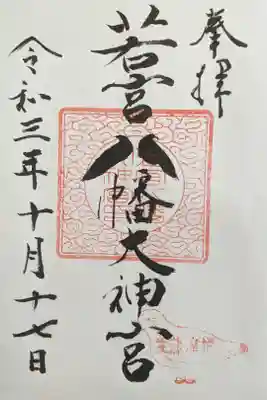 奉拝
若宮八幡大神宮
令和三年十月十七日